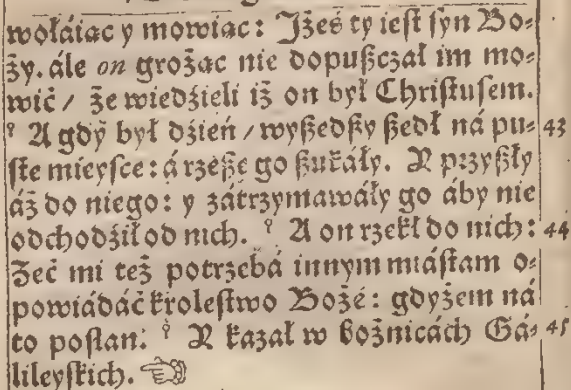 wołáiąc y mowiąc: Jżeś ty iest syn Bo⸗
ży. ále on grożąc nie dopuszczał im mo⸗
wić / że wiedzieli iż on był Christusem.
A gdy był dzień / wyszedszy szedł ná pu⸗ 43
ste mieysce: á rzesze go szukáły. Y przyszły
áż do niego: y zátrzymawáły go áby nie
odchodził od nich. A on rzekł do nich: 44
Żeć mi też potrzebá innym miástam o⸗
powiádáć krolestwo Bożé: gdyżem ná
to posłan. Y kazał w bożnicách Gá⸗ 45
lileyskich. ☜